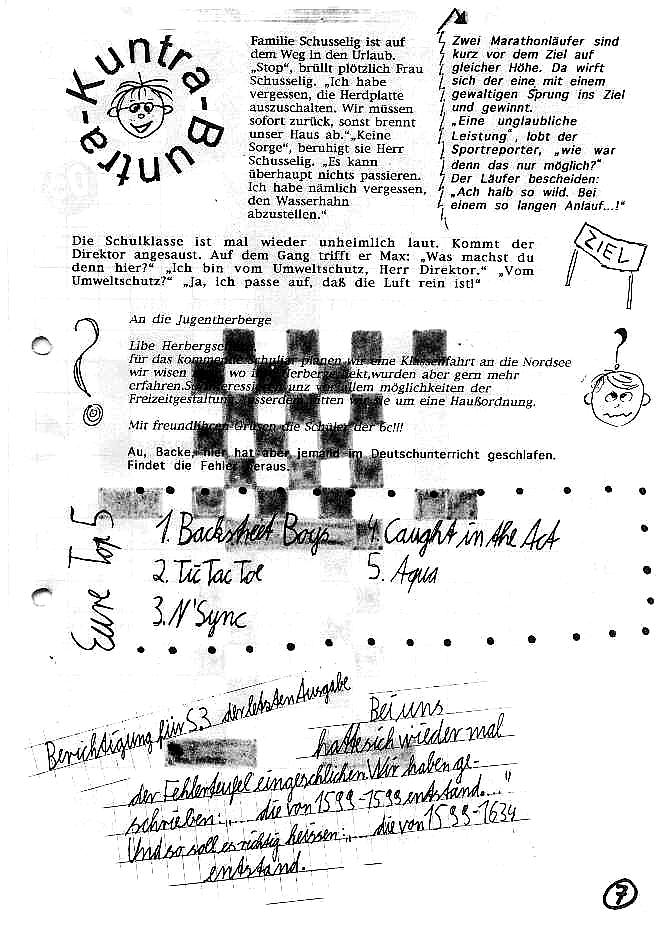 Kuntra-Buntra-
Familie Schusselig ist auf
dem Weg in den Urlaub.
„Stop“, brüllt plötzlich Frau
Schusselig. „Ich habe
vergessen, die Herdplatte
auszuschalten. Wir müssen
sofort zurück, sonst brennt
unser Haus ab.“„Keine
Sorge“, beruhigt sie Herr
Schusselig. „Es kann
überhaupt nichts passieren.
Ich habe nämlich vergessen,
den Wasserhahn
abzustellen.“
Zwei Marathonläufer sind
kurz vor dem Ziel auf
gleicher Höhe. Da wirft
sich der eine mit einem
gewaltigen Sprung ins Ziel
und gewinnt.
„Eine unglaubliche
Leistung“, lobt der
Sportreporter, „wie war
denn das nur möglich?“
Der Läufer bescheiden:
„Ach halb so wild. Bei
einem so langen Anlauf...!“
Die Schulklasse ist mal wieder unheimlich laut. Kommt der
Direktor angesaust. Auf dem Gang trifft er Max: „Was machst du
denn hier?“ „Ich bin vom Umweltschutz, Herr Direktor.“ „Vom
Umweltschutz?“ „Ja, ich passe auf, daß die Luft rein ist!“
ZIEL
An die Jugentherberge
Libe
für das planen wir eine Klassenfahrt an die Nordsee
wir wisen wo aber gern mehr
erfahren. unz allem möglichkeiten der
Freizeitgestaltung um eine Haußordnung.
Mit die Schüler der 6c!!!
Au, Backe, hier hat aber jemand im Deutschunterricht geschlafen.
Findet die Fehler heraus.
Eure Top 5
1. Backstreet Boys 4. Caught in the Act
2. Tic Tac Toe 5. Aqua
3. N'Sync
Berichtigung für S.3 der letzten Ausgabe
Bei uns
hatte sich wieder mal
der Fehlerteufel eingeschlichen. Wir haben ge-
schrieben: „... die von 1599-1599 entstand...."
Und so soll es richtig heissen: „... die von 1599-1634
entstand.
7